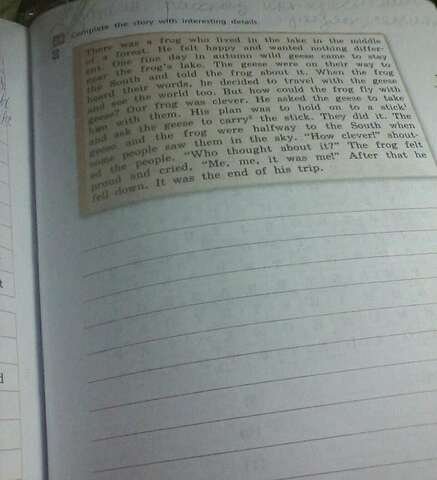 Complete the story with interesting details.
There was a frog who lived in the lake in the middle
of a forest. He felt happy and wanted nothing differ-
ent. One fine day in autumn wild geese came to stay
near the frog's lake. The geese were on their way to
the South and told the frog about it. When the frog
heard their words, he decided to travel with the geese
and see the world too. But how could the frog fly with
geese? Our frog was clever. He asked the geese to take
him with them. His plan was to hold on to a stick¹
and ask the geese to carry² the stick. They did it. The
geese and the frog were halfway to the South when
some people saw them in the sky. "How clever!" shout-
ed the people. "Who thought about it?" The frog felt
proud and cried, "Me, me, it was me!" After that he
fell down. It was the end of his trip.